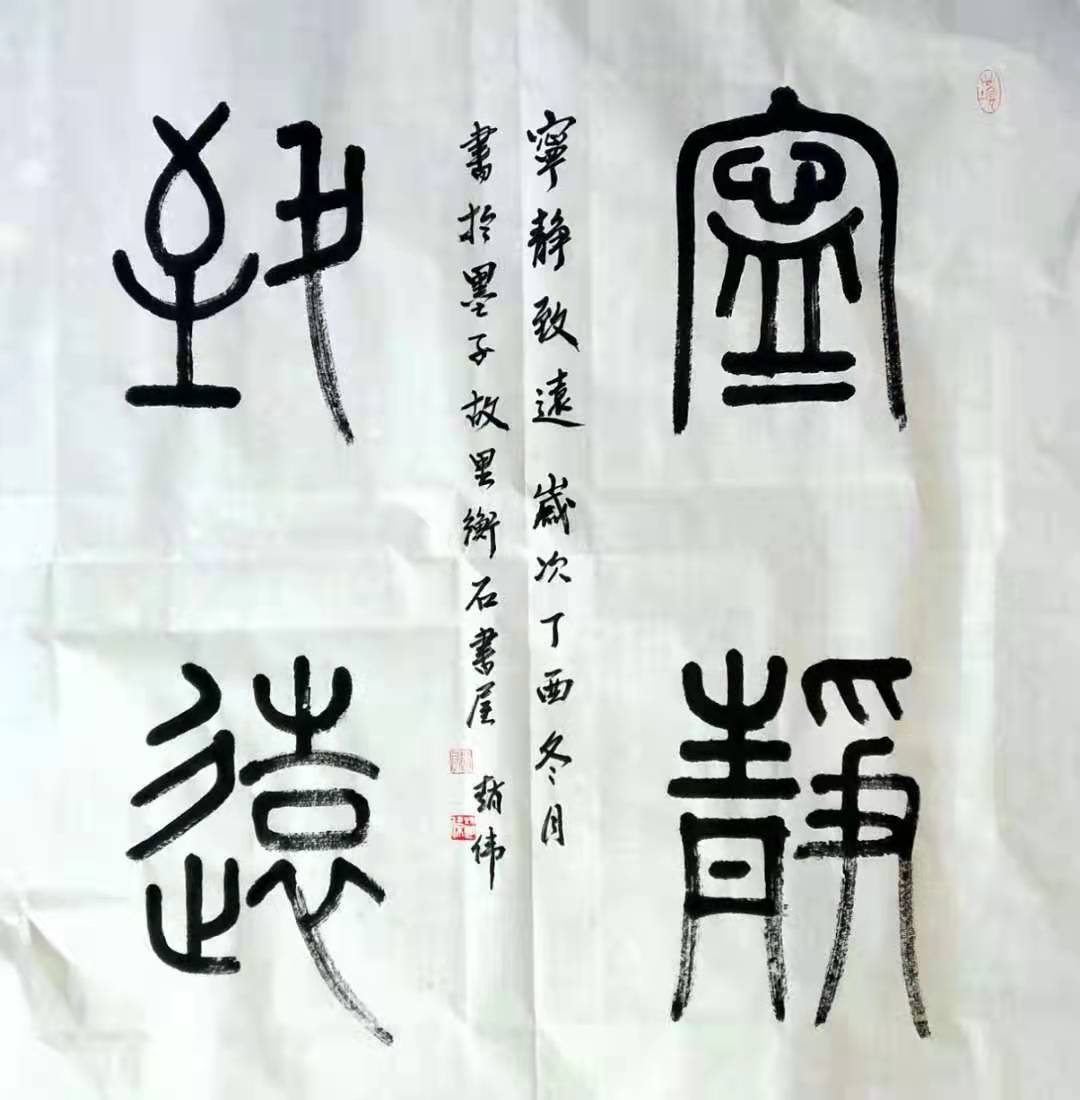 寧靜
致遠
寧靜致遠 歲次丁酉冬月
書於墨子故里衡石書屋 趙偉